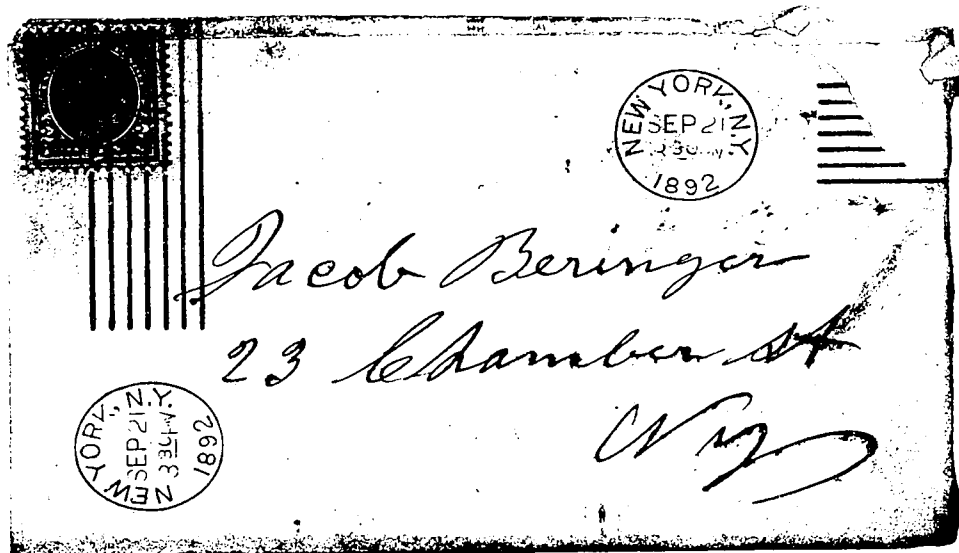 NEW YORK, N.Y.
SEP 21
3 30 PM
1892
Jacob Beringer
23 Chamber St
N Y
NEW YORK, N.Y.
SEP 21
3 30 PM
1892